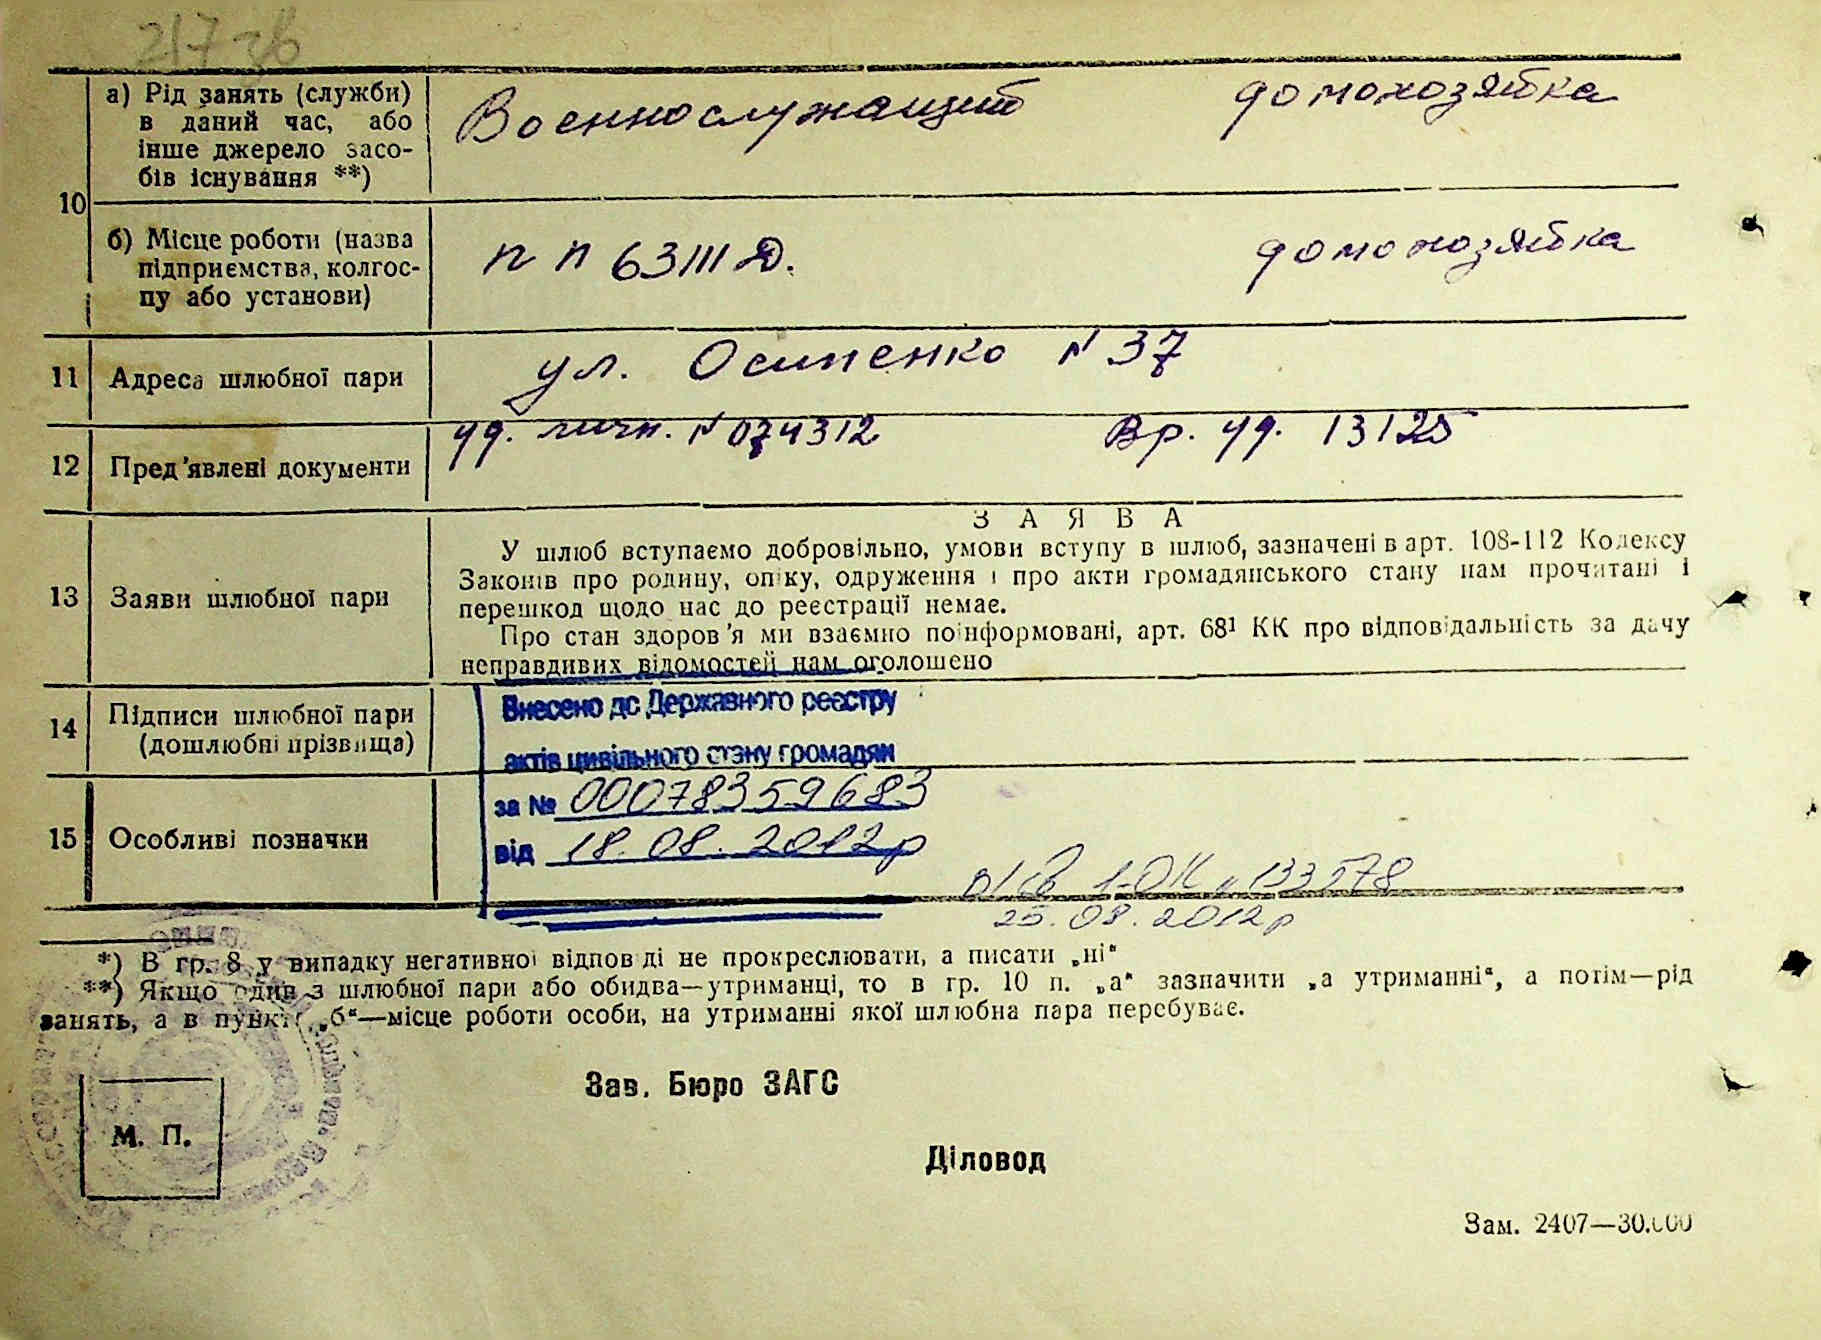 217 зв
10
а) Рід занять (служби)
в даний час, або
інше джерело засо-
бів існування **)
Военнослужащий домохозяйка
б) Місце роботи (назва
підприємства, колгос-
пу або установи)
п п 63111 Д. домохозяйка
11 Адреса шлюбної пари
ул. Осипенко № 37
12 Пред'явлені документи
уд. личн. № 074312 Вр. уд. 13125
13 Заяви шлюбної пари
ЗАЯВА
У шлюб вступаємо добровільно, умови вступу в шлюб, зазначені в арт. 108-112 Кодексу
Законів про родину, опіку, одруження і про акти громадянського стану нам прочитані і
перешкод щодо нас до реєстрації немає.
Про стан здоров'я ми взаємно поінформовані, арт. 68¹ КК про відповідальність за дачу
неправдивих відомостей нам оголошено
14 Підписи шлюбної пари
(дошлюбні прізвища)
Внесено до Державного реєстру
актів цивільного стану громадян
за № 00078359683
від 18.08.2012р
15 Особливі позначки
1-ОК № 133578
25.08.2012р
*) В гр. 8 у випадку негативної відповіді не прокреслювати, а писати „ні“
**) Якщо один з шлюбної пари або обидва—утриманці, то в гр. 10 п. „а“ зазначити „а утриманні“, а потім—рід
занять, а в пункті „б“—місце роботи особи, на утриманні якої шлюбна пара перебуває.
Зав. Бюро ЗАГС
М. П.
Діловод
Зам. 2407—30.000